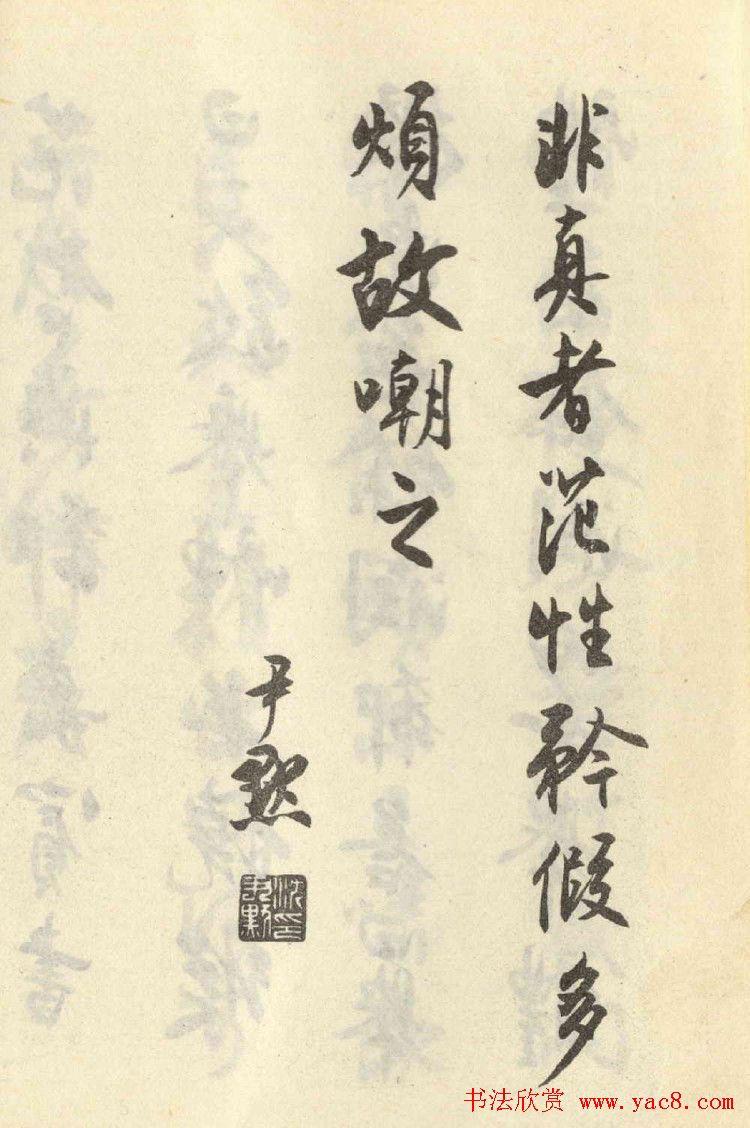 非真者范性矜假多
煩故嘲之
尹默
沈尹默印
书法欣赏 www.yac8.com